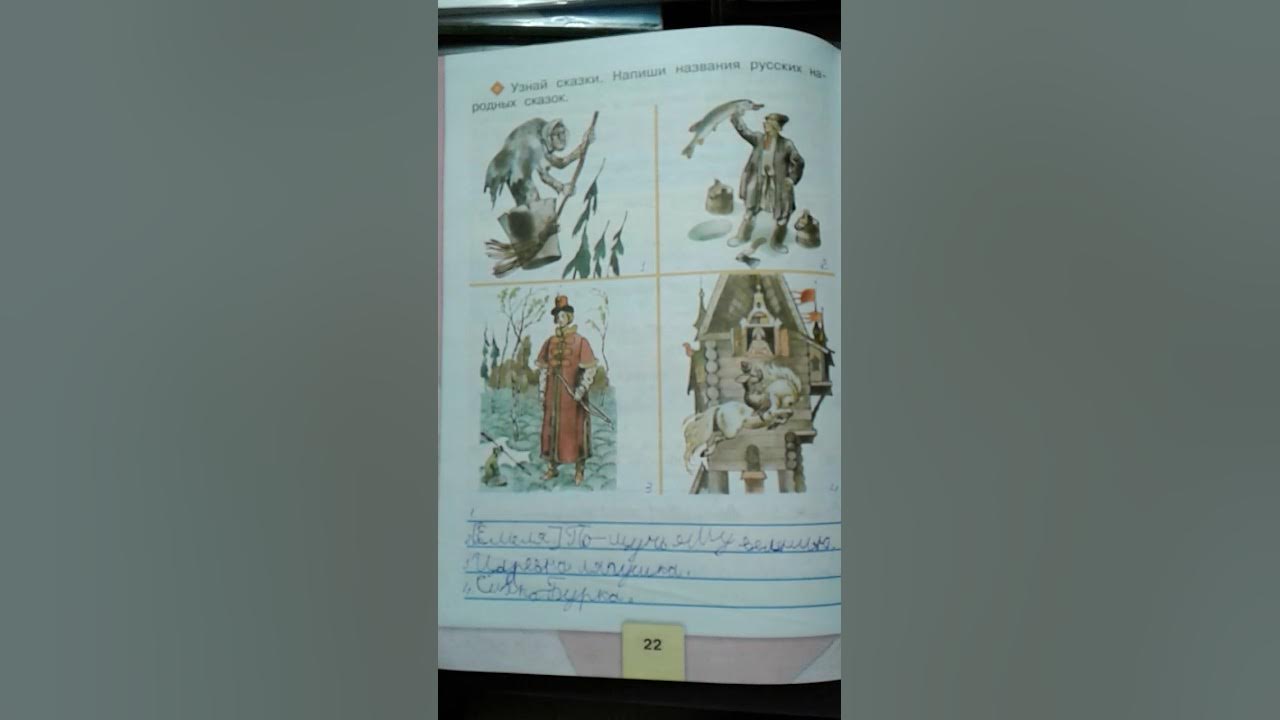 Узнай сказки. Напиши названия русских на-
родных сказок.
1
2
3
4
1
2 [Емеля] По-щучьему велению.
3 Царевна лягушка.
4 Сивка-Бурка.
22